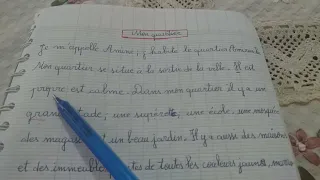 Mon quartier
Je m'appelle Amine, j'habite le quartier
Mon quartier se situe à la sortie de la ville. Il est
propre et calme. Dans mon quartier il y a un
grand stade, une supérette, une école, une mosquée
des magasins et un beau jardin. Il y a aussi des maisons
et des immeubles peintes de toutes les couleurs jaune,